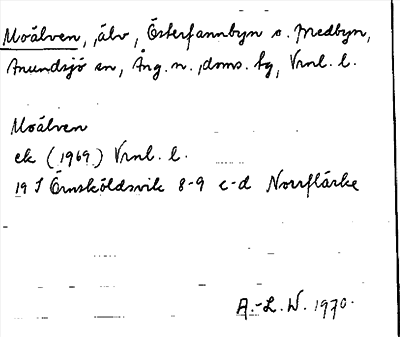 Moälven, älv, Österfannbyn o. Medbyn,
Anundsjö sn, Ång. n., doms. hg, Vrnl. l.
Moälven
ek (1969) Vrnl. l.
19 I Örnsköldsvik 8-9 c-d Norrflärke
A.-L. W. 1970.